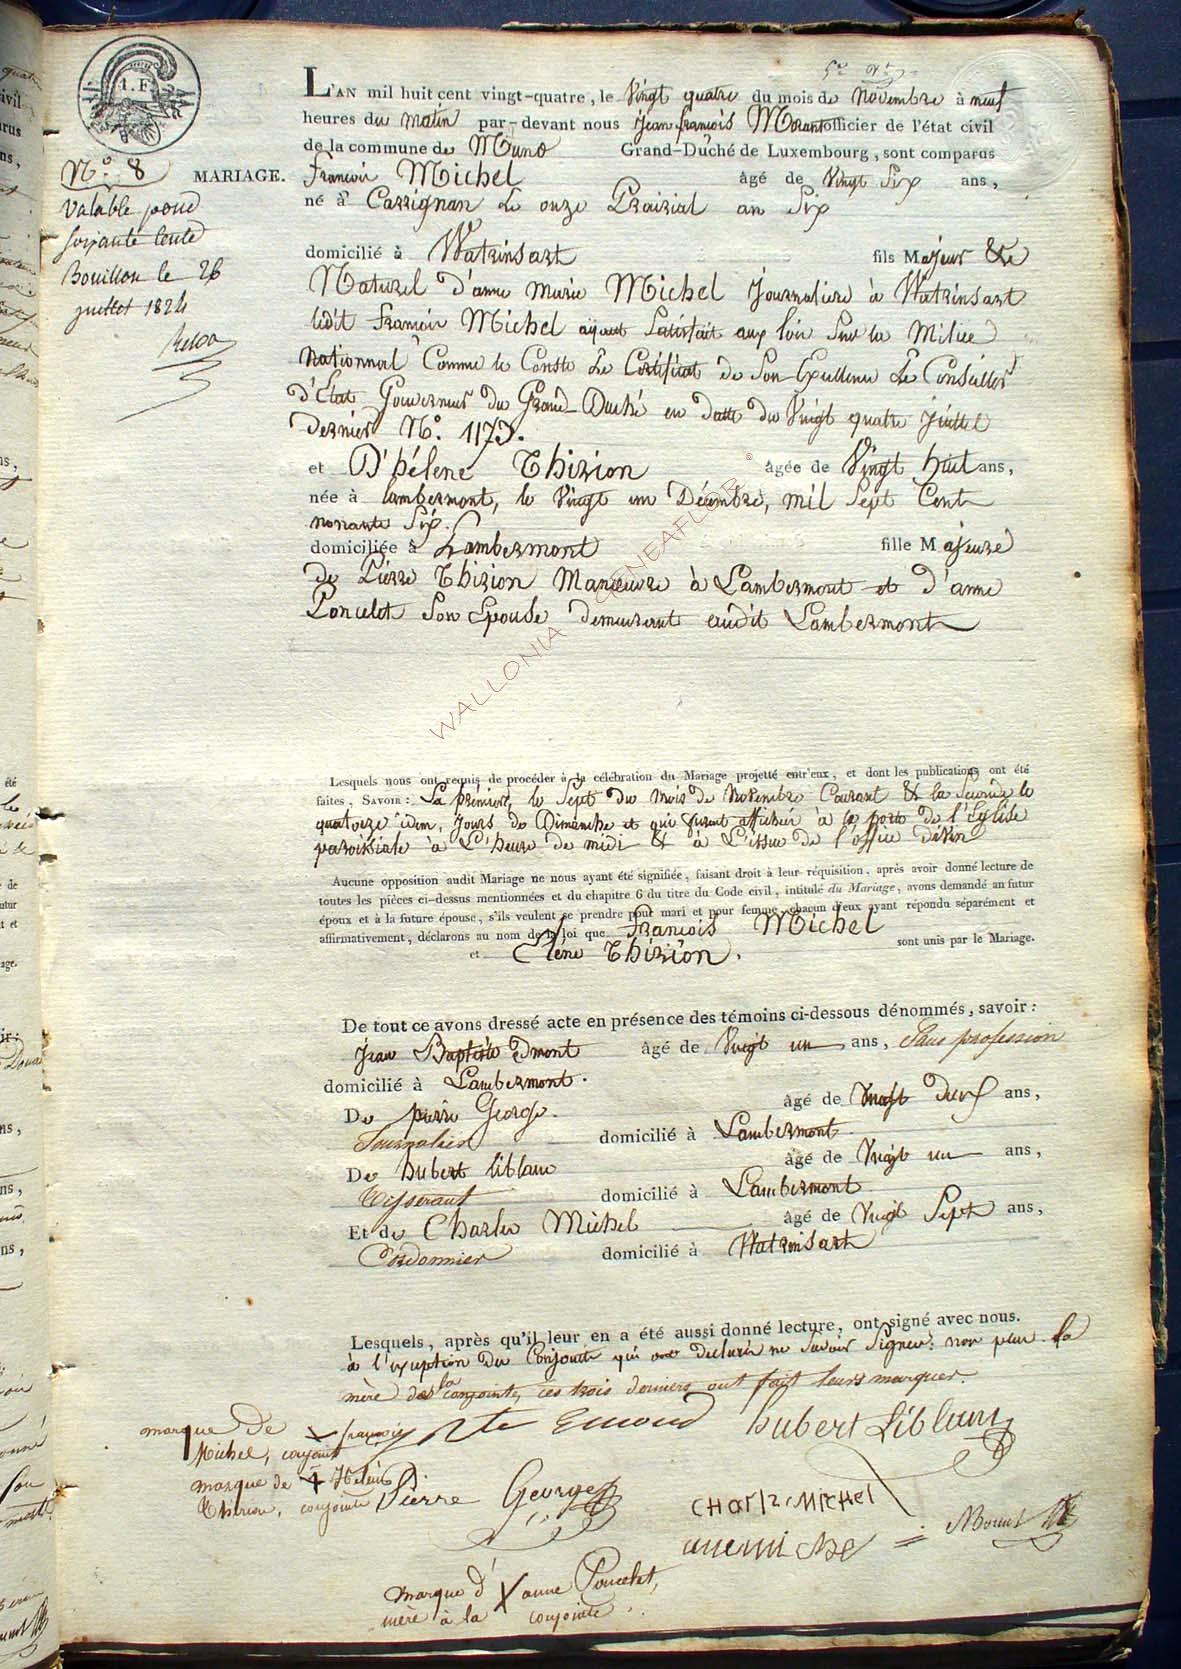 1. F.
L'AN mil huit cent vingt-quatre, le Vingt quatre du mois de Novembre à neuf
heures du matin par-devant nous Jean françois Mouut officier de l'état civil
de la commune de Muno Grand-Duché de Luxembourg, sont comparus
N.° 8
MARIAGE.
françois Michel âgé de Vingt Six ans,
né à Carrignan Le onze Prairial an Six
Valable pour
soixante cents
Bouillon le 26
juillet 1824
domicilié à Watrinsart fils Majeur &
Naturel d'anne Marie Michel Journaliere à Watrinsart
ledit François Michel ayant Satisfait aux loix Sur la Milice
Nationnal Comme le Conste Le Certificat de Son Excellence Le Conseiller
d'État Gouverneur du Grand-Duché en datte du Vingt quatre Juillet
dernier N.° 1173.
et D'hélene Thirion âgée de Vingt huit ans,
née à Lambermont, le Vingt un Décembre, mil Sept Cent
nonante Six.
domiciliée à Lambermont fille Majeure
de Pierre Thirion Manœuvre à Lambermont et d'anne
Poncelet Son Epouse demeurant audit Lambermont
WALLONIA GENEAFLORE ©
Lesquels nous ont requis de procéder à la célébration du Mariage projetté entr'eux, et dont les publications ont été
faites, SAVOIR: La premiere, le Sept du mois de Novembre Courant & la Seconde le
quatorze idem, Jours de Dimanche et qui furent afficheé à la porte de l'Eglise
paroissiale à L'heure de midi & à L'issue de l'office divin
Aucune opposition audit Mariage ne nous ayant été signifiée, faisant droit à leur réquisition, après avoir donné lecture de
toutes les pièces ci-dessus mentionnées et du chapitre 6 du titre du Code civil, intitulé du Mariage, avons demandé au futur
époux et à la future épouse, s'ils veulent se prendre pour mari et pour femme, chacun d'eux ayant répondu séparément et
affirmativement, déclarons au nom de la loi que François Michel
et Elêne Thirion. sont unis par le Mariage.
De tout ce avons dressé acte en présence des témoins ci-dessous dénommés, savoir:
Jean Baptiste Emont âgé de Vingt un ans, Sans profession
domicilié à Lambermont.
De pierre George. âgé de Vingt deux ans,
Journalier domicilié à Lambermont
De hubert liblanc âgé de Vingt un ans,
Tisserant domicilié à Lambermont
Et de Charles Michel âgé de Vingt Sept ans,
Cordonnier domicilié à Watrinsart
Lesquels, après qu'il leur en a été aussi donné lecture, ont signé avec nous.
à l'exeption des Conjoints qui ont declarés ne Savoir Signer: non plus la
mère de la conjointe, ces trois derniers ont fait leurs marques.
marque de X françois
Michel, conjoint
marque de + Helene
Thirion, conjointe
Emond
hubert Liblanc
Pierre George
CHARLE MICHEL
marque d' X anne Poncelet,
mère à la conjointe.